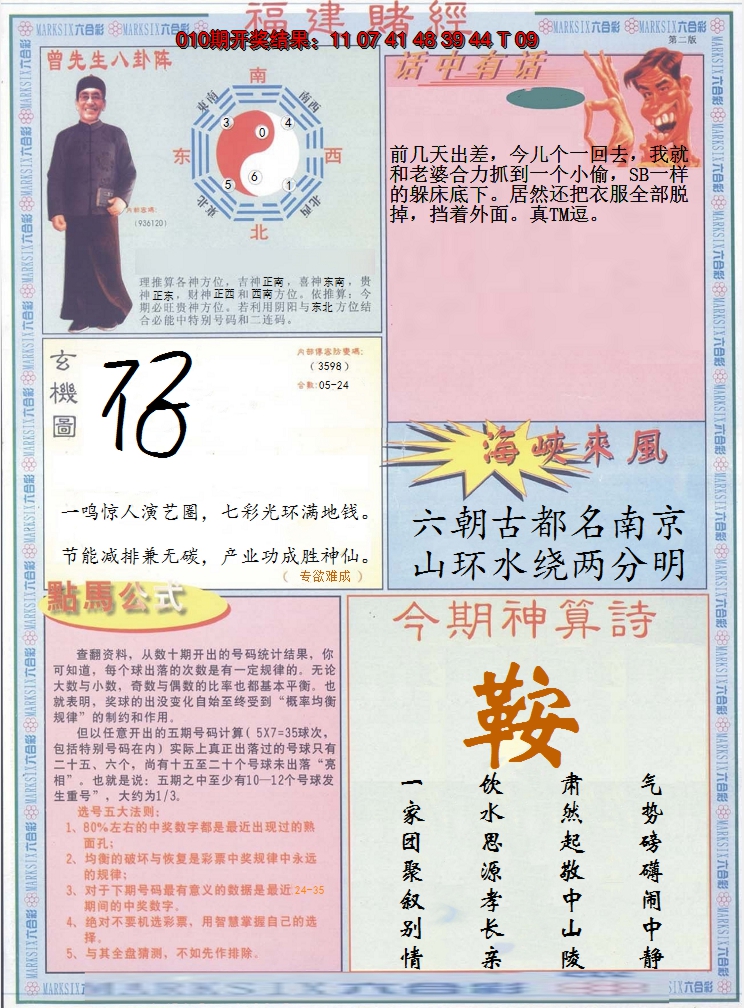 福建賭經
010期开奖结果: 11 07 41 48 39 44 T 09
第二版
MARKSIX六合彩
曾先生八卦阵
南
东南
南西
3
0
4
东
西
5
6
1
东北
北西
北
内部密碼:
(936120)
理推算各神方位，吉神正南，喜神东南，贵
神正东，财神正西和西南方位。依推算：今
期必旺贵神方位。若利用阴阳与东北方位结
合必能中特别号码和二连码。
话中有话
前几天出差，今儿个一回去，我就
和老婆合力抓到一个小偷，SB一样
的躲床底下。居然还把衣服全部脱
掉，挡着外面。真TM逗。
玄機圖
内部傳密防變碼:
(3598)
合数:05-24
一鸣惊人演艺圈，七彩光环满地钱。
节能减排兼无碳，产业功成胜神仙。
（ 专欲难成 ）
海峽來風
六朝古都名南京
山环水绕两分明
點馬公式
查翻资料，从数十期开出的号码统计结果，你
可知道，每个球出落的次数是有一定规律的。无论
大数与小数，奇数与偶数的比率也都基本平衡。也
就表明，奖球的出没变化自始至终受到“概率均衡
规律”的制约和作用。
但以任意开出的五期号码计算( 5X7=35球次，
包括特别号码在内) 实际上真正出落过的号球只有
二十五、六个，尚有十五至二十个号球未出落“亮
相”。也就是说：五期之中至少有10—12个号球发
生重号”，大约为1/3。
选号五大法则：
1、80%左右的中奖数字都是最近出现过的熟
面孔；
2、均衡的破坏与恢复是彩票中奖规律中永远
的规律；
3、对于下期号码最有意义的数据是最近24-35
期间的中奖数字。
4、绝对不要机选彩票，用智慧掌握自己的选
择。
5、与其全盘猜测，不如先作排除。
今期神算詩
鞍
一家团聚叙别情
饮水思源孝长亲
肃然起敬中山陵
气势磅礴闹中静